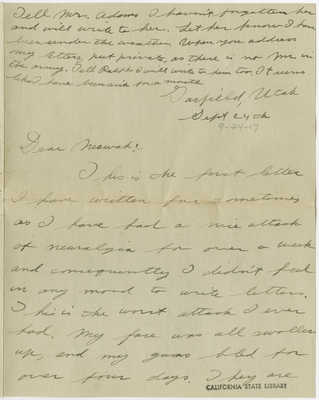 Tell Mrs. Adams I haven't forgotten her
and will write to her. Let her know I have
been under the weather. When you address
my letters put private, as there is no Mr. in
the army. Tell Ralph I will write to him too. It seems
like I have been in for a month
Garfield, Utah
Sept 24th
9-24-17
Dear
This is the first letter
I have written for sometime
as I have had a nice attack
of neuralgia for over a week
and consequently I didn't feel
in any mood to write letters.
This is the worst attack I ever
had. My face was all swollen
up, and my gums bled for
over four days. They are
CALIFORNIA STATE LIBRARY